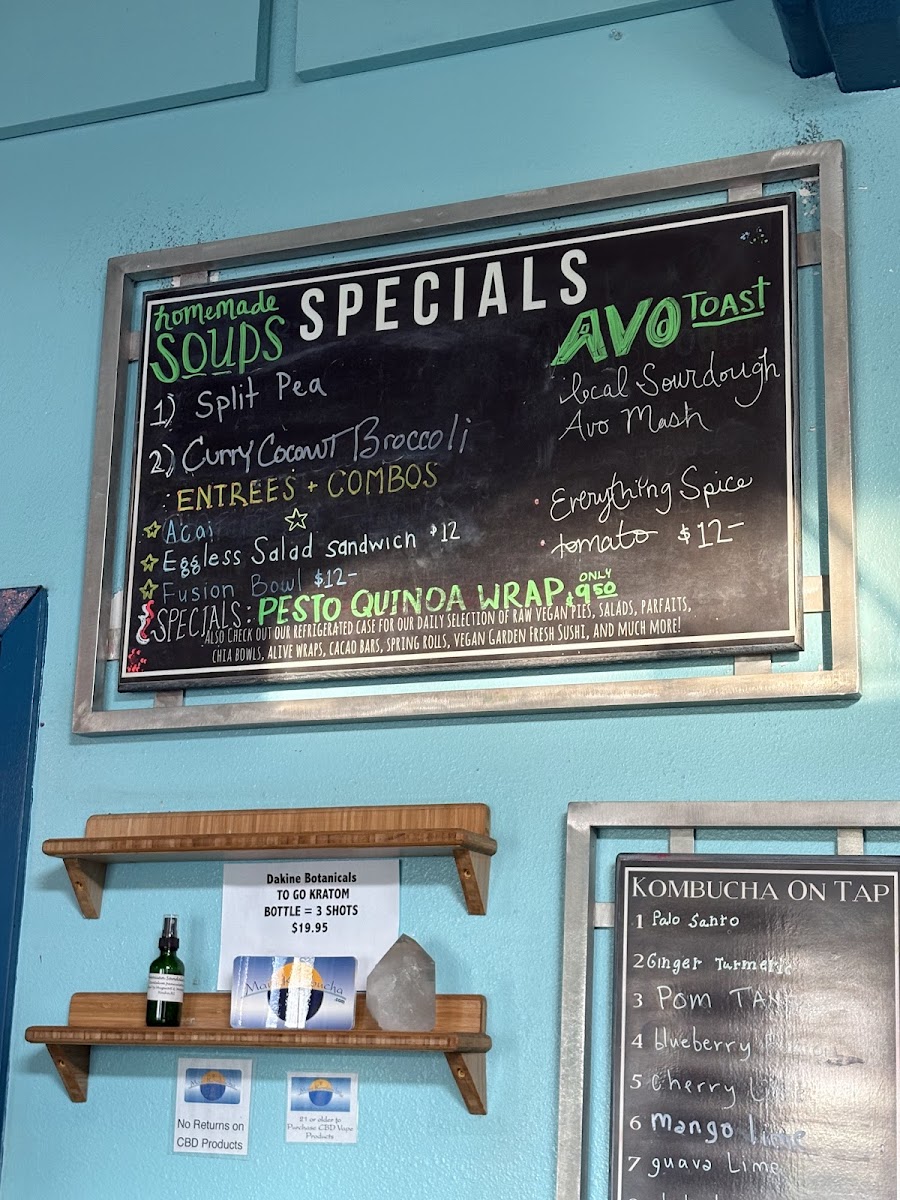 SPECIALS
homemade
SOUPS
1) Split Pea
2) Curry Coconut Broccoli
ENTREES + COMBOS
Acai
Eggless Salad sandwich $12
Fusion Bowl $12-
AVO TOAST
local Sourdough
Avo Mash
Everything Spice
tomato $12-
SPECIALS: PESTO QUINOA WRAP ONLY $9.50
ALSO CHECK OUT OUR REFRIGERATED CASE FOR OUR DAILY SELECTION OF RAW VEGAN PIES, SALADS, PARFAITS,
CHIA BOWLS, ALIVE WRAPS, CACAO BARS, SPRING ROLLS, VEGAN GARDEN FRESH SUSHI, AND MUCH MORE!
Dakine Botanicals
TO GO KRATOM
BOTTLE = 3 SHOTS
$19.95
No Returns on
CBD Products
21 or older to
Purchase CBD Vape
Products
KOMBUCHA ON TAP
1 Palo Santo
2 Ginger Turmeric
3 Pom
4 blueberry
5 Cherry
6 Mango lime
7 guava Lime